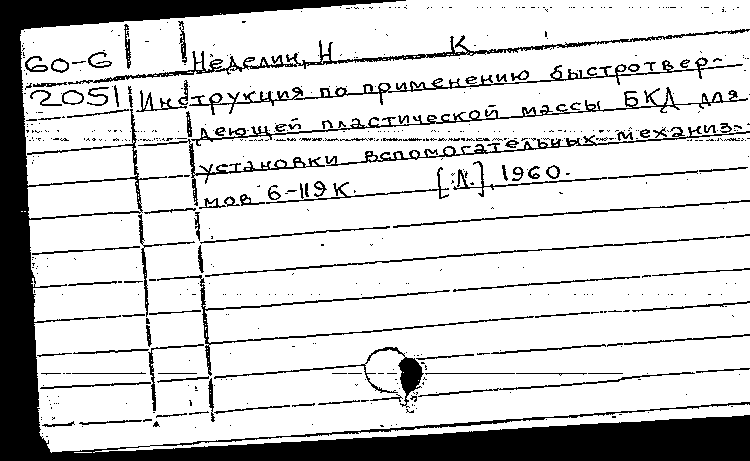 60-6 Неделин, Н К
2051 Инструкция по применению быстротвер-
деющей пластической массы БКД для
установки вспомогательных механиз-
мов 6-119К. [Л.], 1960.